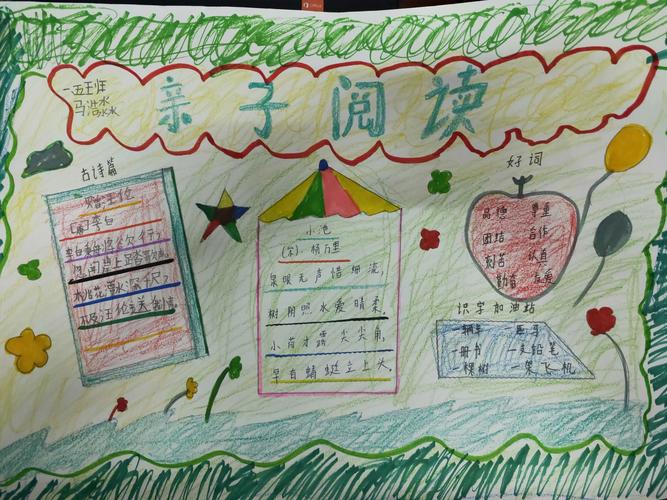 亲子阅读
一五班
马浩水
古诗篇
赠汪伦
[唐]李白
李白乘舟将欲行,
忽闻岸上踏歌声。
桃花潭水深千尺,
不及汪伦送我情。
小池
(宋).杨万里
泉眼无声惜细流,
树阴照水爱晴柔,
小荷才露尖尖角,
早有蜻蜓立上头,
好词
品德 尊重
团结 合作
刻苦 认真
勤奋 友爱
识字加油站
一辆车 一匹马
一册书 一支铅笔
一棵树 一架飞机